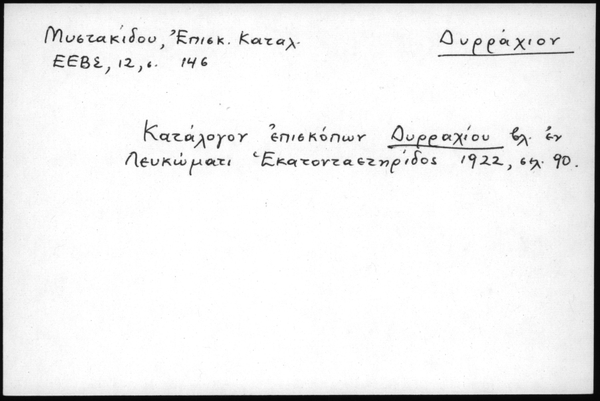 Μυστακίδου, Ἐπισκ. Καταλ.
ΕΕΒΣ, 12, σ. 146
Δυρράχιον
Κατάλογον ἐπισκόπων Δυρραχίου βλ. ἐν
Λευκώματι Ἑκατονταετηρίδος 1922, σελ. 90.